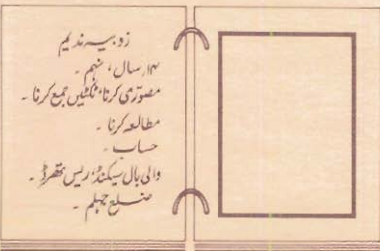 زوبیہ ندیم
۱۴ سال، نہم ۔
مصوّری کرنا، ٹکٹیں جمع کرنا ۔
مطالعہ کرنا ۔
حساب ۔
والی بال سیکنڈ، ریس تھرڈ ۔
ضلع جہلم ۔